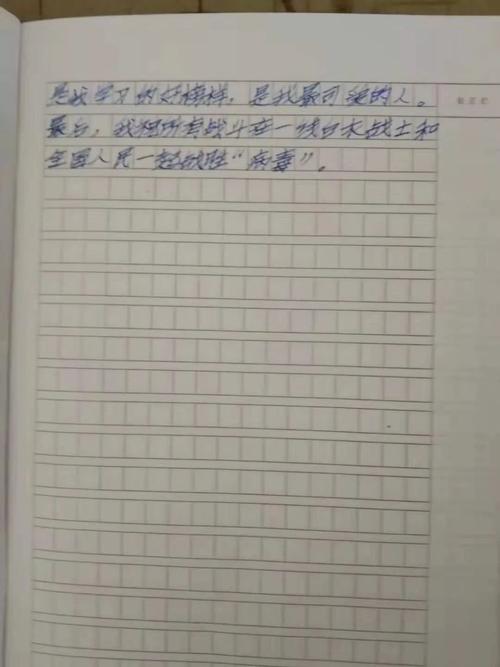 是我学习的好榜样，是我最可爱的人。
最后，我和所有战斗在一线白衣战士和
全国人民一起战胜“病毒”。